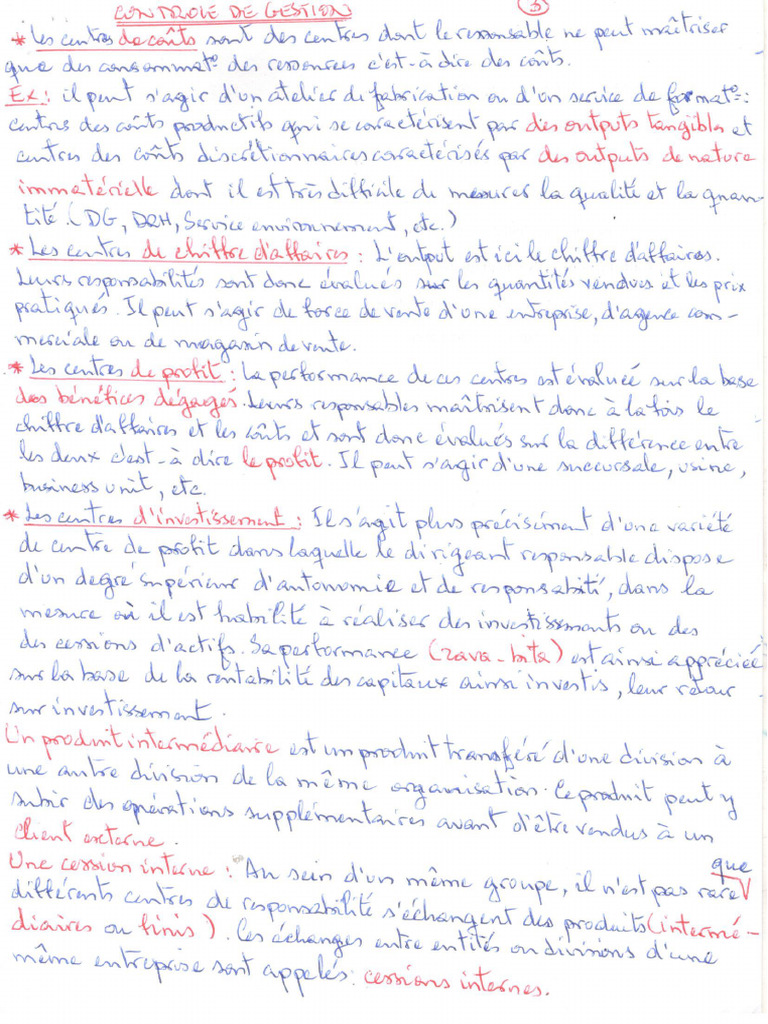 CONTROLE DE GESTION 3
* Les centres de coûts sont des centres dont le responsable ne peut maîtriser
que des consommat° des ressources c'est-à dire des coûts.
Ex: il peut s'agir d'un atelier de fabrication ou d'un service de format°:
centres des coûts productifs qui se caractérisent par des outputs tangibls et
centres des coûts discrétionnaires caractérisés par des outputs de nature
immatérielle dont il est très difficile de mesurer la qualité et la quan-
tité. (DG, DRH, Service environnement, etc.)
* Les centres de chiffre d'affaires : L'output est ici le chiffre d'affaires.
Leurs responsabilités sont donc évalués sur les quantités vendues et les prix
pratiqués. Il peut s'agir de force de vente d'une entreprise, d'agence com-
merciale ou de magasin de vente.
* Les centres de profit : La performance de ces centres est évaluée sur la base
des bénéfices dégagés. Leurs responsables maîtrisent donc à la fois le
chiffre d'affaires et les coûts et sont donc évalués sur la différence entre
les deux c'est-à dire le profit. Il peut s'agir d'une succursale, usine,
business unit, etc.
* Les centres d'investissement : Il s'agit plus précisément d'une variété
de centre de profit dans laquelle le dirigeant responsable dispose
d'un degré supérieur d'autonomie et de responsabité, dans la
mesure où il est habilité à réaliser des investissements ou des
des cessions d'actifs. Sa performance (zava-bita) est ainsi appréciée
sur la base de la rentabilité des capitaux ainsi investis, leur retour
sur investissement.
Un produit intermédiaire est un produit transféré d'une division à
une autre division de la même organisation. Ce produit peut y
subir des opérations supplémentaires avant d'être vendus à un
client externe.
Une cession interne : Au sein d'un même groupe, il n'est pas rare que
différents centres de responsabilité s'échangent des produits (intermé-
diaires ou finis). Ces échanges entre entités ou divisions d'une
même entreprise sont appelés: cessions internes.